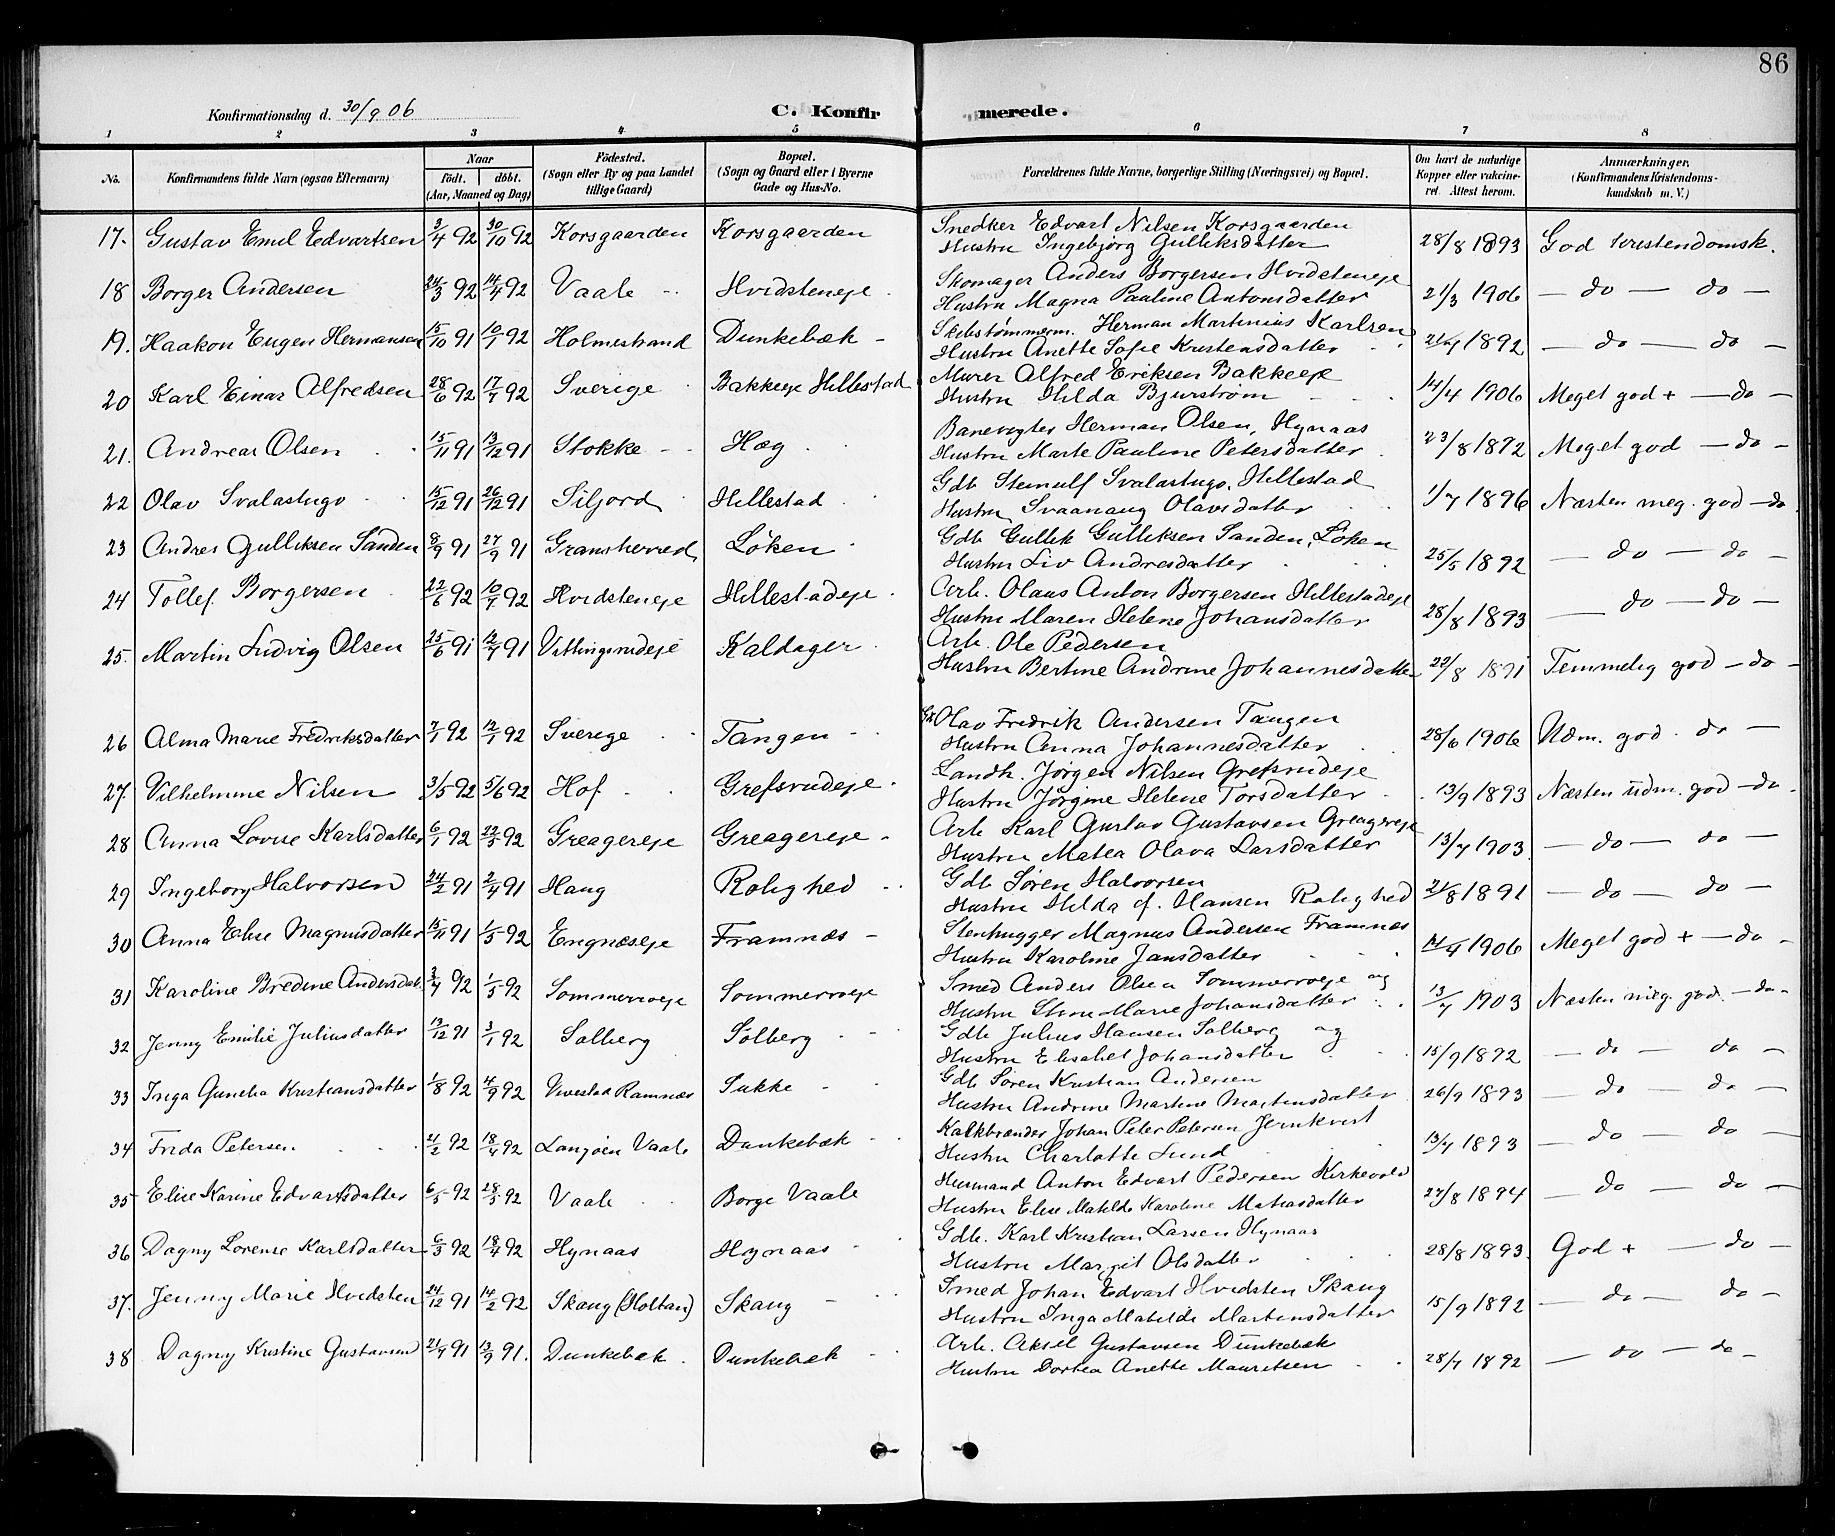 86
Konfirmationsdag d. 30/9 06
C. Konfirmerede.
1 2 3 4 5 6 7 8
No. | Konfirmandens fulde Navn (ogsaa Efternavn) | Naar födt. döbt. (Aar, Maaned og Dag) | Födested. (Sogn eller By og paa Landet tillige Gaard) | Bopæl. (Sogn og Gaard eller i Byerne Gade og Hus-No. | Forældrenes fulde Navne, borgerlige Stilling (Næringsvei) og Bopæl. | Om havt de naturlige Kopper eller vakcineret. Attest herom. | Anmærkninger. (Konfirmandens Kristendomskundskab m. V.)
17. Gustav Emil Edvartsen 3/4 92 30/10 92 Korsgaarden Korsgaarden Snedker Edvart Nilsen Korsgaarden
Hustru Ingebjørg Gulliksdatter 28/8 1893 God kristendomsk.
18 Borger Andersen 24/3 92 14/4 92 Vaale Hvidsteneje Skomager Anders Borgersen Hvidsteneje
Hustru Magna Pauline Antonsdatter 21/3 1906 — do — do —
19. Haakon Eugen Hermansen 15/10 91 10/1 92 Holmestrand Dunkebæk Skibstømmerm. Herman Martinius Karlsen
Hustru Anette Sofie Kristensdatter 1892 — do — do —
20 Karl Einar Alfredsen 28/6 92 17/7 92 Sverige Bakkeeje Hillestad Murer Alfred Eriksen Bakkeeje
Hustru Hilda Bjurstrøm 14/4 1906 Meget god + — do —
21. Andreas Olsen 15/11 91 13/12 91 Stokke Hæg Banevogter Herman Olsen, Hynaas
Hustru Marte Pauline Petersdatter 23/8 1892 Meget god — do —
22 Olav Svalastugo 15/12 91 26/12 91 Siljord Hillestad Gdb Steinulf Svalastugo, Hillestad
Hustru Svaanaug Olavsdatter 1/7 1896 Næsten meg. god — do
23 Andres Gulliksen Sanden 8/9 91 27/9 91 Gransherred Løken Gdb Gullik Gulliksen Sanden, Løken
Hustru Liv Andresdatter 25/5 1892 — do — do —
24 Tollef Borgersen 22/6 92 10/7 92 Hvidsteneje Hillestadeje Arb. Olaus Anton Borgersen Hillestadeje
Hustru Maren Helene Johansdatter 28/8 1893 — do — do —
25. Martin Ludvig Olsen 25/6 91 12/7 91 Vittingsrudeje Kaldager Arb. Ole Pedersen
Hustru Bertine Andrine Johannesdatter 22/8 1891 Temmelig god — do —
26 Alma Marie Fredriksdatter 7/1 92 12/1 92 Sverige Tangen Olav Fredrik Andersen Tangen
Hustru Anna Johannesdatter 28/6 1906 Udm. god. do —
27. Vilhelmine Nilsen 3/5 92 5/6 92 Hof Grefsrudeje Landh. Jørgen Nilsen Grefsrudeje
Hustru Jørgine Helene Torsdatter 13/9 1893 Næsten udm. god — do
28 Anna Lovise Karlsdatter 6/1 92 22/5 92 Greagereje Greagereje Arb Karl Gustav Gustavsen Greagereje
Hustru Matea Olava Larsdatter 13/7 1903 — do — do
29 Ingeborg Halvorsen 24/2 91 2/4 91 Haug Rolighed Gdb Søren Halvorsen
Hustru Hilda f. Hansen Rolighed 21/8 1891 — do — do —
30 Anna Elise Magnusdatter 15/11 91 1/5 92 Engnæseje Framnæs Stenhugger Magnus Andersen Framnæs
Hustru Karoline Jansdatter 1906 Meget god + — do —
31 Karoline Bredine Andersdat. 3/4 92 1/5 92 Sommerroeje Sommerroeje Smed Anders Olsen Sommerroeje og
Hustru Marie Johansdatter 13/7 1903 Næsten meg. god. — do —
32 Jenny Emilie Juliusdatter 13/12 91 3/1 92 Solberg Solberg Gdb Julius Hansen Solberg og
Hustru Elisabet Johansdatter 15/9 1892 — do — do —
33 Inga Gunelia Kristiansdatter 1/8 92 4/9 92 Vivestad Ramnæs Sukke Gdb Søren Kristian Andersen
Hustru Andrine Martine Martinsdatter 26/9 1893 — do — do —
34 Frida Petersen 21/2 92 18/4 92 Langøen Vaale Dunkebæk Kalkbrænder Johan Peter Petersen Jernkvist
Hustru Charlotte Lund 13/7 1893 — do — do —
35 Elise Karine Edvartsdatter 6/3 92 28/5 92 Vaale Borge Vaale Husmand Anton Edvart Pedersen Kirkevold
Hustru Elise Matilde Karoline Matiasdatter 27/8 1894 — do — do —
36 Dagny Lorense Karlsdatter 6/3 92 18/4 92 Hynaas Hynaas Gdb. Karl Kristian Larsen Hynaas
Hustru Margit Olsdatter 28/8 1893. God + — do —
37. Jenny Marie Hvidsten 24/12 91 14/2 92 Skaug (Holtan) Skaug Smed Johan Edvart Hvidsten Skaug
Hustru Inga Matilde Martinsdatter 15/9 1892 — do — do —
38 Dagny Kristine Gustavsen 21/7 91 13/9 91. Dunkebæk Dunkebæk Arb. Aksel Gustavsen Dunkebæk
Hustru Dortea Anette Mauritsen 28/7 1892 — do — do —